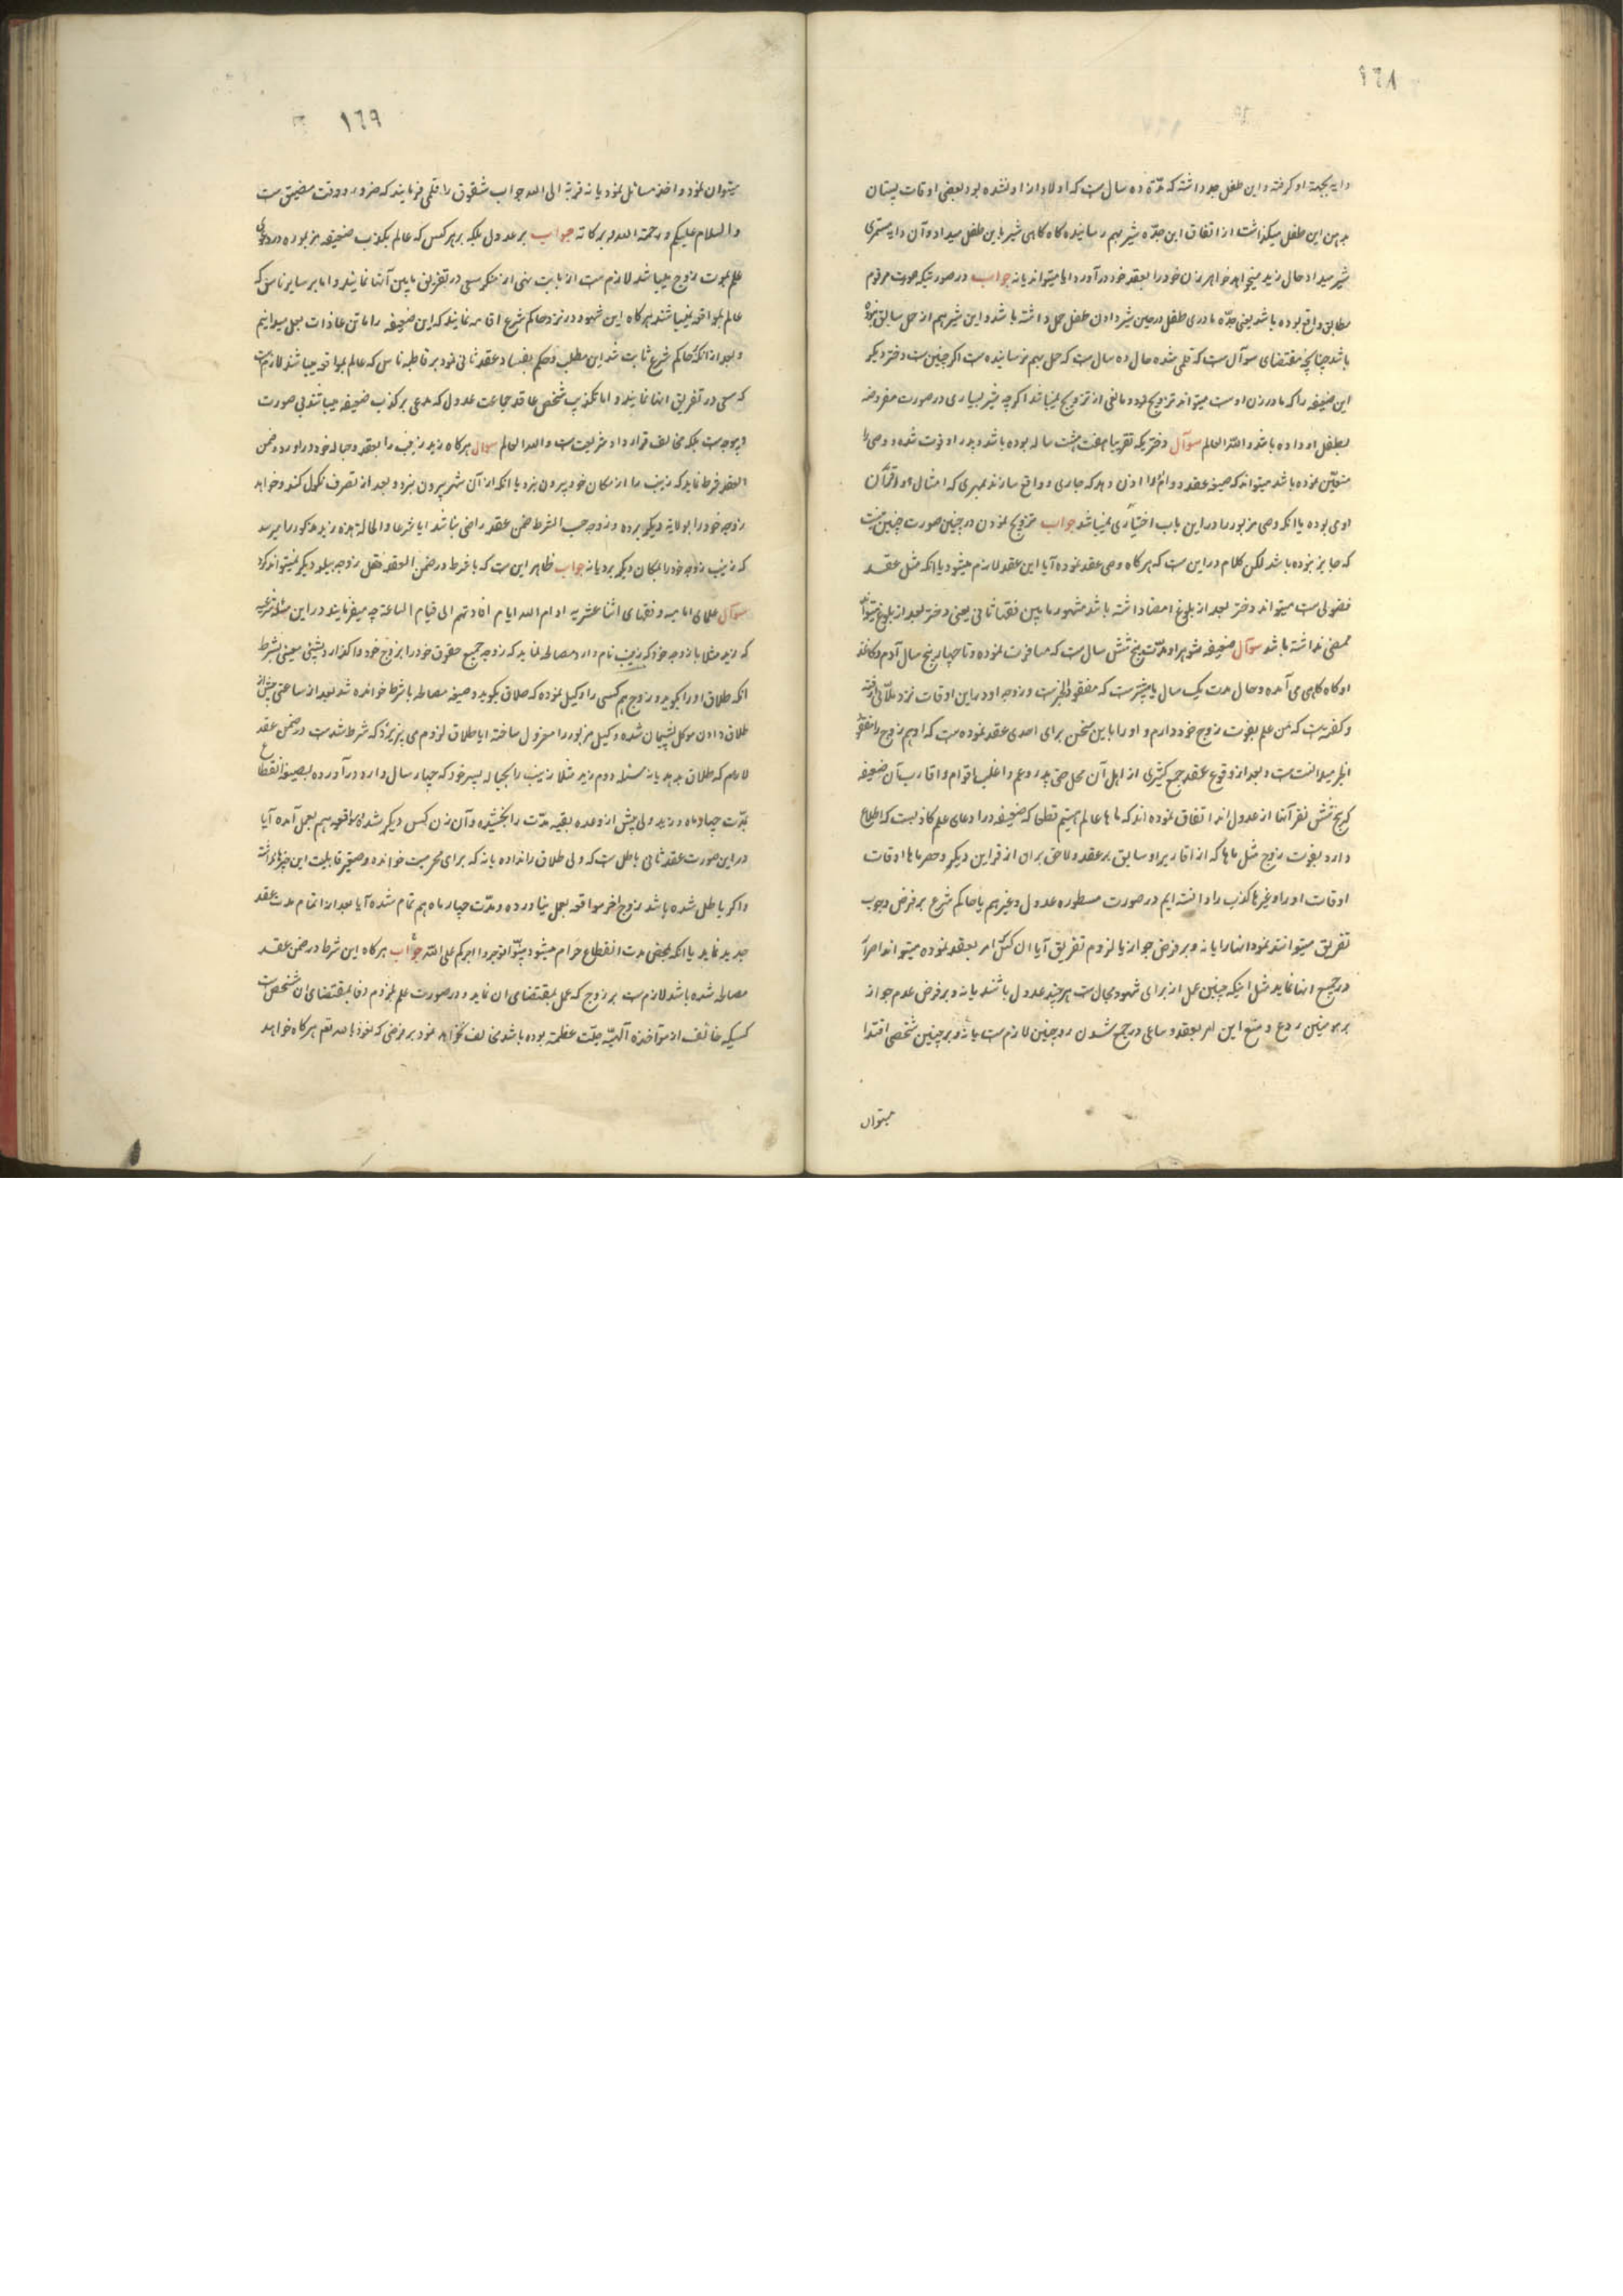 ١٦٨
دایه بجهة او کرفته و این طفل جده داشته که مدّة ده سال است که اولاد از او نشده بود بعضی اوقات پستان
بدهن این طفل میکذاشت از اتفاق این جدّه شیر بهم رسانیده کاه کاهی شیر باین طفل میداد و آن دایه مستمری
شیر میداد حال زید میخواهد خواهر زن خود را بعقد خود در آورد ایا میتواند یا نه جواب در صورتیکه صورت مرقوم
مطابق واقع بوده باشد یعنی جدّه مادری طفل در حین شیر دادن طفل حمل داشته باشد و این شیر هم از حمل سابق نبوده
باشد چنانچه مقتضای سوآل است که قلمی شده حال ده سال است که حمل بهم نرسانیده است اکر چنین است دختر دیکر
این ضعیفه را که مادر زن اوست میتواند تزویج نمود و مانعی از تزویج نمیباشد اکرچه شیر بسیاری در صورت مفروضه
بطفل او داده باشد و اللّه العالم سوآل دختریکه تقریبا هفت هشت ساله بوده باشد و پدر او فوت شده و وصی را
متعیّن نموده باشد میتواند که صیغه عقد دوام او را اذن دهد که جاری و واقع سازند بمهری که امثال و اقران
اوی بوده یا انکه وصی مزبور را در این باب اختیاری نمیباشد جواب تزویج نمودن در چنین صورت چنین نیست
که جایز نبوده باشد لکن کلام در این ست که هر کاه وصی عقد نموده آیا این عقد لازم میشود یا انکه مثل عقد
فضولی ست میتواند دختر بعد از بلوغ امضا داشته باشد مشهور ما بین فقها ثانی یعنی دختر بعد از بلوغ میتواند
ممضی نداشته باشد سوآل ضعیفه شوهر او مدّت پنج شش سال ست که مسافرت نموده و تا چهار پنج سال آدم و کاغذ
او کاه کاهی می آمده و حال مدت یک سال یا بیشتر ست که مفقود الخبر ست و زوجه او در این اوقات نزد ملّائی رفته
و کفته ست که من علم بفوت زوج خود دارم و او را باین سخن برای احدی عقد نموده ست که او هم زوج را مفقود
الخبر میدانست ست و بعد از وقوع عقد جمع کثیری از اهل آن محل حتی پدر و عم و اغلب اقوام و اقارب آن ضعیفه
که پنج شش نفر آنها از عدول اند اتفاق نموده اند که ما ها عالم هستیم قطعا که ضعیفه در ادعای علم کاذب ست که اطلاع
دارد بفوت زوج مثل ما ها که از اقاریر او سابق بر عقد و لاحق بر ان از قراین دیکر و حصر ما ها اوقات
اوقات او را و غیرها کذب را دانسته ایم در صورت مسطوره عدول و غیرهم یا حاکم شرع بر فرض وجوب
تفریق میتوانند نمود انها را یا نه و بر فرض جواز یا لزوم تفریق آیا ان کس امر بعقد نموده میتواند اصرار
در جمیع انها نماید مثل اینکه چنین عمل از برای شهود محال ست هر چند عدول باشند یا نه و بر فرض عدم جواز
بر مومنین ردع و منع این امر بعقد و ساعی در جمع شدن زوجین لازم ست یا نه و بر چنین شخصی اقتدا
میتوان
١٦٩
میتوان نمود و اخذ مسائل نمود یا نه قربة الی الله جواب شقوق را قلمی فرمایند که ضرور و وقت مضیق ست
و السلام علیکم و رحمة الله و برکاته جواب بر عدول بلکه بر هر کس که عالم بکذب ضعیفه مزبوره در دعوی
علم بموت زوج میباشد لازم ست از بابت نهی از منکر سعی در تفریق ما بین آنها نمایند و اما بر سایر ناس که
عالم بمواقعه نمیباشند هر کاه این شهود در نزد حاکم شرع اقامه نمایند که این ضعیفه را ما تن عاذات بعمل میدانیم
و بعد از انکه حاکم شرع ثابت شد این مطلب و حکم بفساد عقد ثانی نمود بر قاطبه ناس که عالم بمواقعه میباشند لازم ست
که سعی در تفریق انها نمایند و اما تکذیب شخص عاقد جماعت عدول که مدعی بر کذب ضعیفه میباشند بی صورت
و بیوجه ست بلکه مخالف قرار داد شریعت ست و الله العالم سوال هر کاه زید زینب را بعقد و حباله خود در اورد و ضمن
العقد شرط نماید که زینب را از مکان خود بیرون نبرد یا انکه از آن شهر بیرون نبرد و بعد از تصرف نکول کند و خواهد
زوجه خود را بولایة دیکر برده و زوجه حسب الشرط ضمن عقد راضی نباشد ایا شرعا و الحالة هذه زید مذکور را میرسد
که زینب زوجه خود را بمکان دیکر برد یا نه جواب ظاهر این ست که با شرط در ضمن العقد نقل زوجه ببلد دیکر نمیتواند کرد
سوآل علمای امامیه و فقهای اثنا عشریه ادام الله ایام افادتهم الی قیام الساعة چه میفرمایند در این مسئله شرعیه
که زید مثلا با زوجه خود که زینب نام دارد مصالحه نماید که زوجه جمیع حقوق خود را بزوج خود واکذارد بشیئی معینی بشرط
انکه طلاق او را بکوید و زوج هم کسی را وکیل نموده که طلاق بکوید و صیغه مصالحه با شرط خوانده شد بعد از ساعتی پیش از
طلاق دادن موکل پشیمان شده وکیل مزبور را معزول ساخته ایا طلاق لزوم می پزیرد که شرط شد ست در ضمن عقد
لازم که طلاق بدهد یا نه مسئله دوم زید مثلا زینب را بحباله پسر خود که چهار سال دارد در آورده بصیغه انقطاع
بمدّت چهار ماه و زید ولی پیش از وعده بقیه مدّت را بخشیده و آن زن بکس دیکر شده و مواقعه هم بعمل آمده آیا
در این صورت عقد ثانی باطل ست که ولی طلاق را نداده یا نه که برای محرمیت خوانده و صغیر قابلیت این چیزها نداشته
و اکر باطل شده باشد زوج اخر مواقعه بعمل نیاورده و مدّت چهار ماه هم تمام شده آیا بعد از اتمام مدت عقد
جدید نماید یا انکه بمحض مدت انقطاع حرام میشود بیّنوا توجروا اجرکم علی اللّه جواب هر کاه این شرط در ضمن عقد
مصالحه شده باشد لازم ست بر زوج که عمل بمقتضای ان نماید و در صورت علم بلزوم وفا بمقتضای ان شخص
کسیکه خائف از مؤاخذه آلهیّه جلّت عظمته بوده باشد مخالف نخواهد نمود بر فرضی که نعوذ بالله تعم هر کاه خواهد